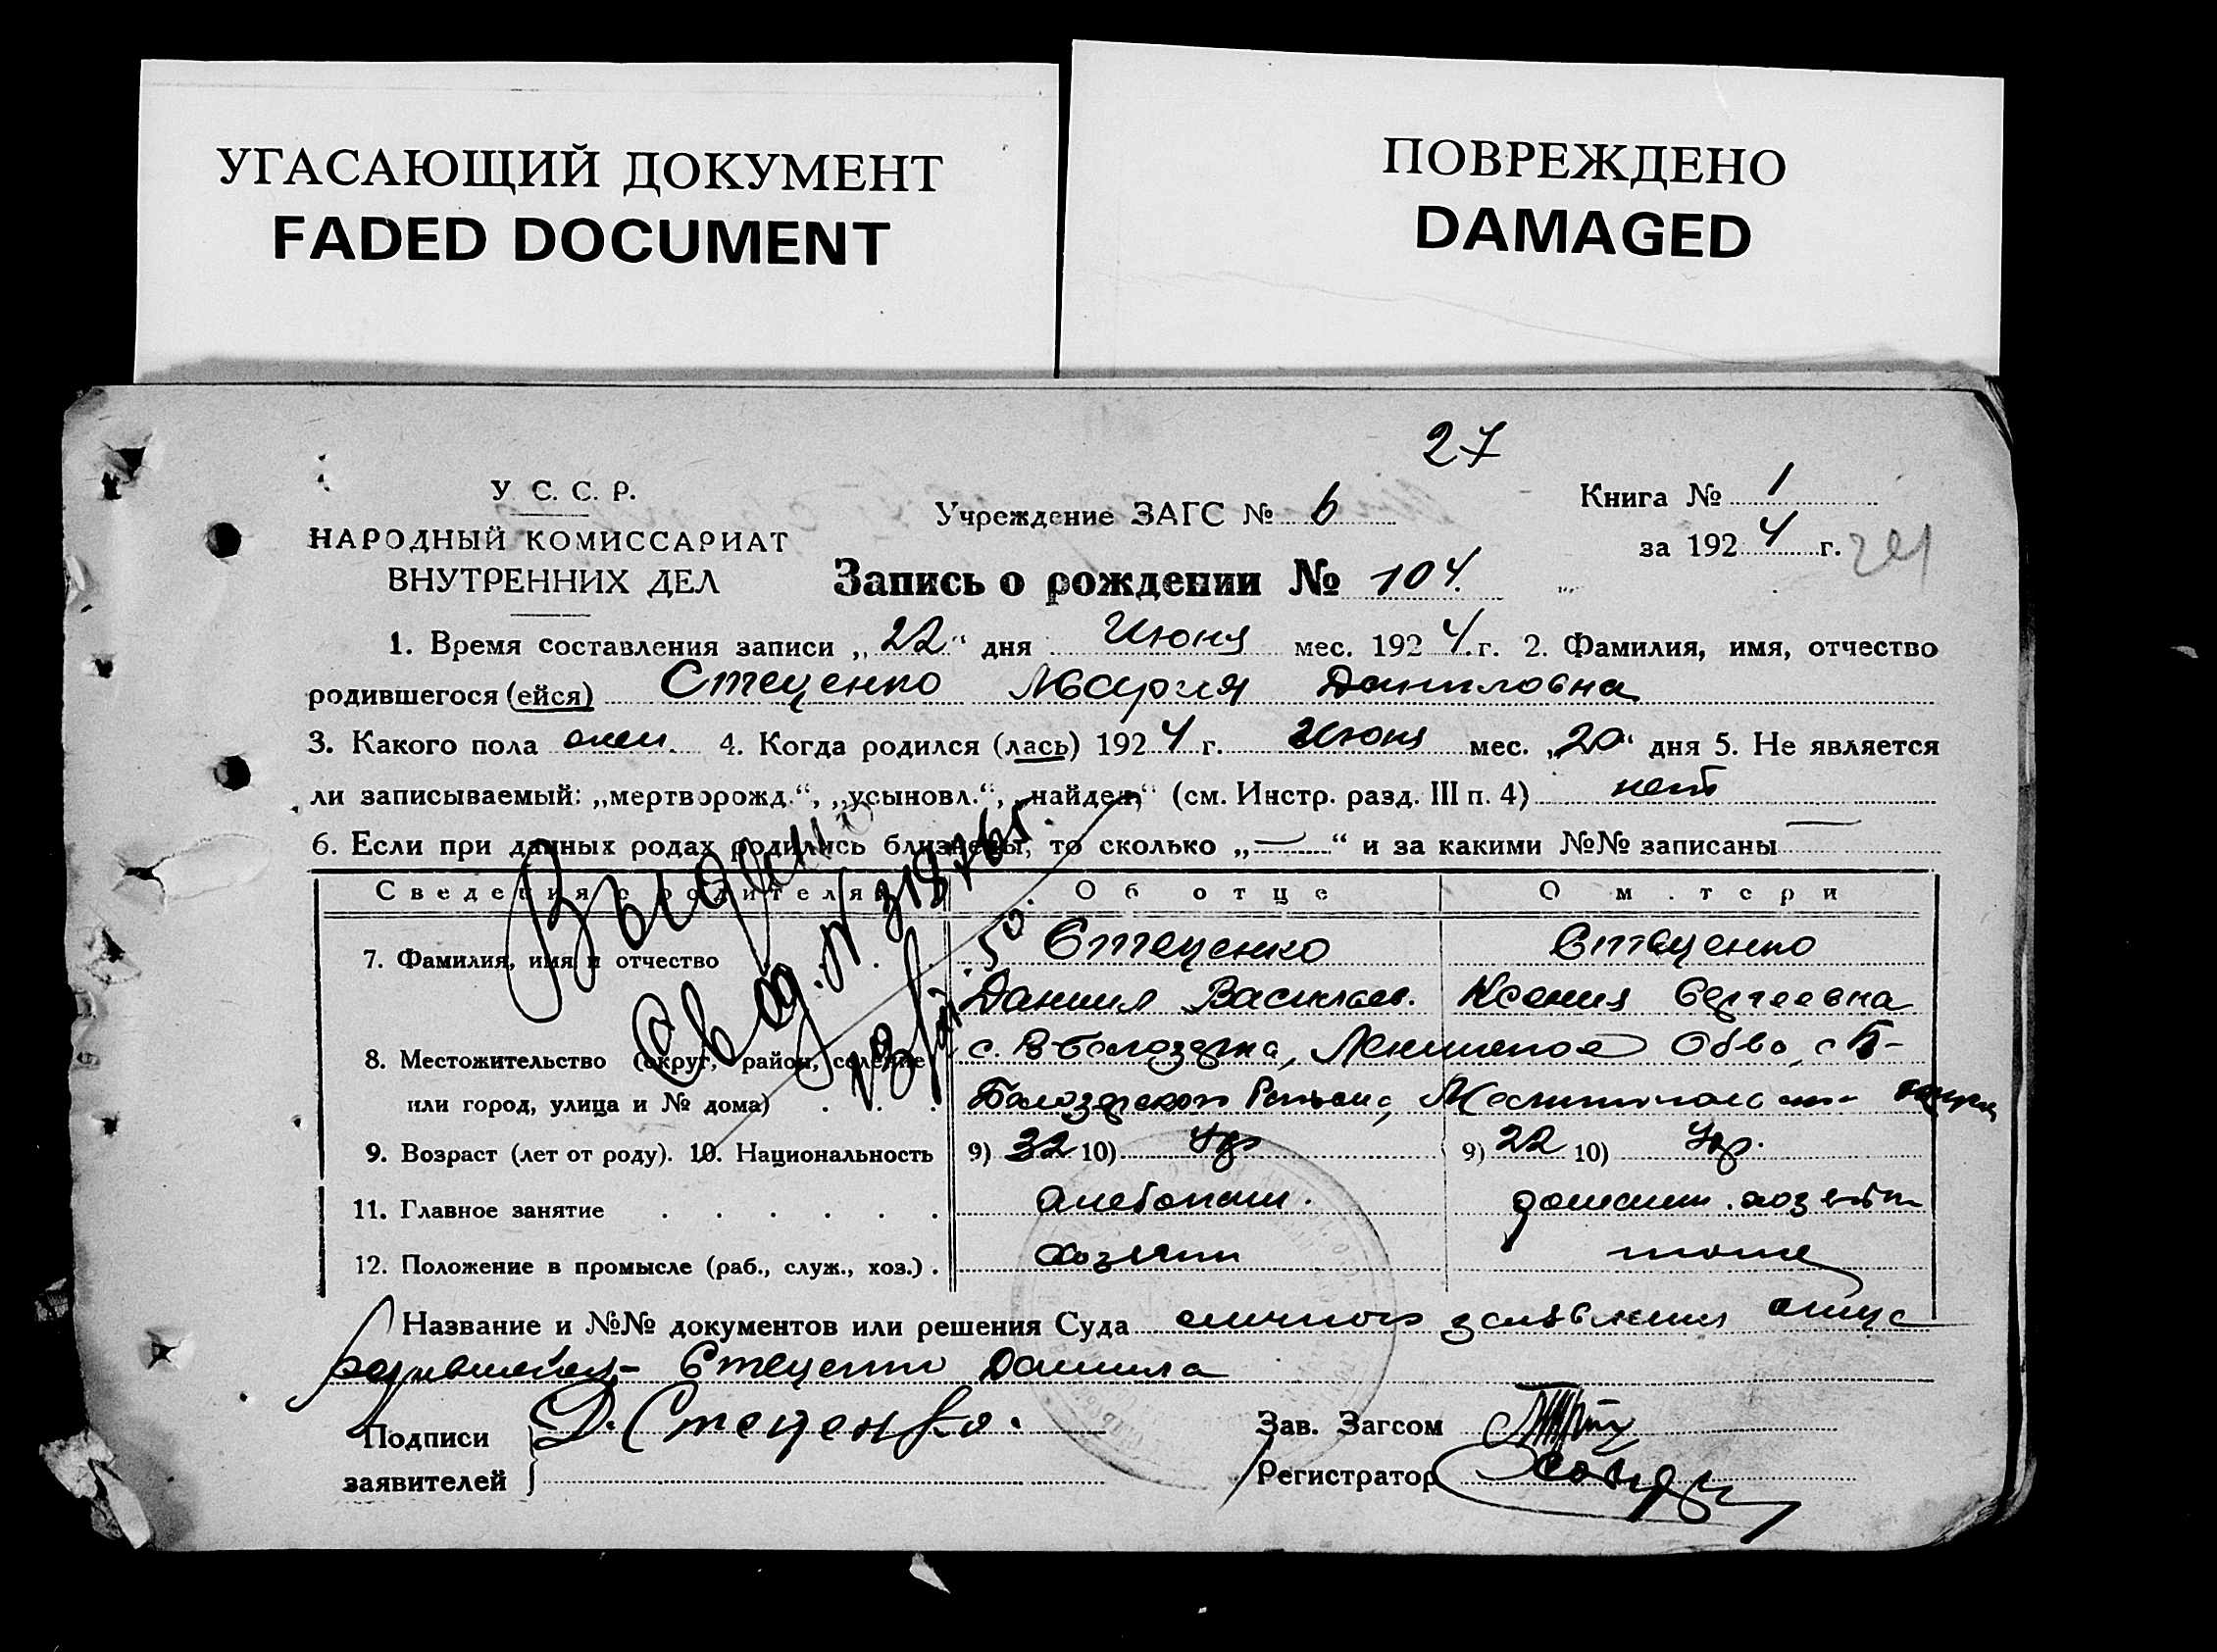 УГАСАЮЩИЙ ДОКУМЕНТ
FADED DOCUMENT
ПОВРЕЖДЕНО
DAMAGED
27
У С. С. Р.
НАРОДНЫЙ КОМИССАРИАТ
ВНУТРЕННИХ ДЕЛ
Учреждение ЗАГС № 6
Книга № 1
за 1924 г.
Запись о рождении № 104.
1. Время составления записи „22“ дня Июня мес. 1924 г. 2. Фамилия, имя, отчество
родившегося (ейся) Стеценко Мария Даниловна
3. Какого пола жен. 4. Когда родился (лась) 1924 г. Июня мес. „20“ дня 5. Не является
ли записываемый: „мертворожд.“, „усыновл.“, „найден,“ (см. Инстр. разд. III п. 4) нет
6. Если при данных родах родились близнецы, то сколько „—“ и за какими №№ записаны —
Сведения о родителях Об отце О м.тери
7. Фамилия, имя и отчество Стеценко Стеценко
Даниил Васильев. Ксения Сергеевна
8. Местожительство (округ, район, селение с. Обва, с
или город, улица и № дома)
9. Возраст (лет от роду). 10. Национальность 9) 32 10) Укр 9) 22 10) Укр.
11. Главное занятие хлебопаш. домашн.
12. Положение в промысле (раб., служ., хоз.) хозяин тоже
Выдано
Свид. №
Название и №№ документов или решения Суда заявления отца
родившейся – Стеценко Даниила
Подписи
заявителей
Д. Стеценко.
Зав. Загсом
Регистратор